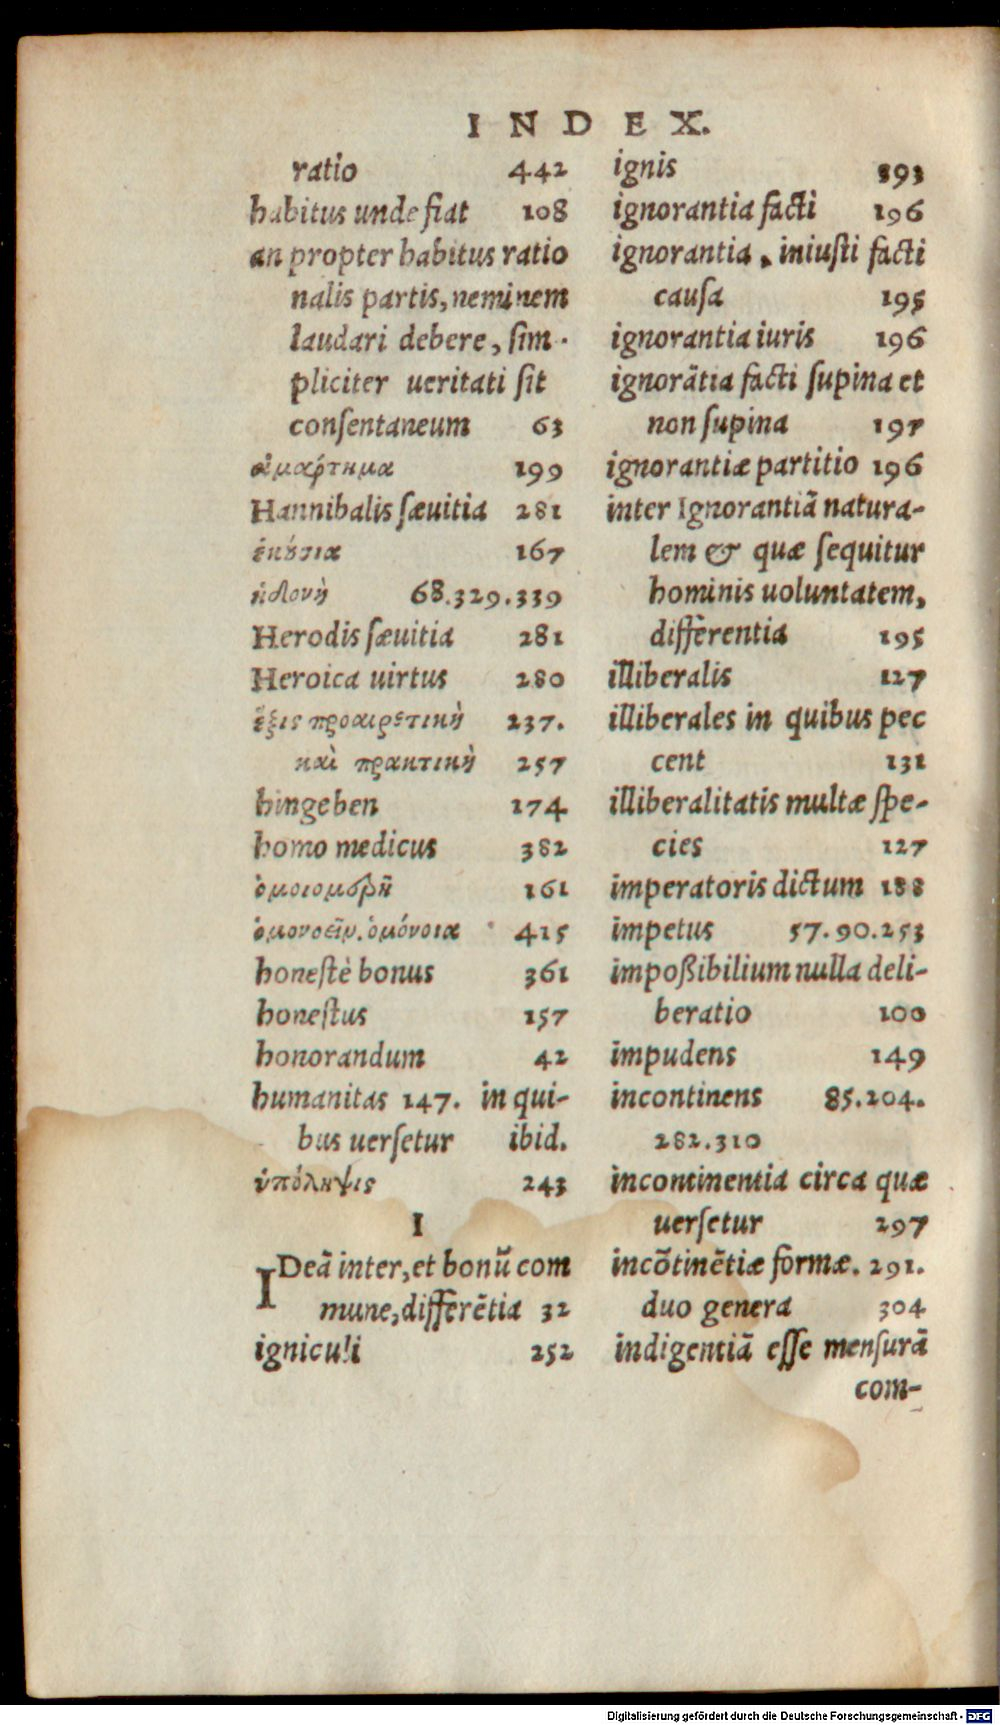 INDEX.
ratio 442
habitus unde fiat 108
an propter habitus ratio
nalis partis, neminem
laudari debere, sim-
pliciter ueritati sit
consentaneum 63
ἁμάρτημα 199
Hannibalis sæuitia 281
ἑκούσια 167
ἡδονὴ 68.329.339
Herodis sæuitia 281
Heroica uirtus 280
ἕξις προαιρετικὴ 237.
καὶ πρακτικὴ 257
hingeben 174
homo medicus 382
ὁμοιομερῆ 161
ὁμονοεῖν. ὁμόνοια 415
honestè bonus 361
honestus 157
honorandum 42
humanitas 147. in qui-
bus uersetur ibid.
ὑπόληψις 243
I
IDeã inter, et bonũ com
mune, differẽtia 32
igniculi 252
ignis 393
ignorantia facti 196
ignorantia, iniusti facti
causa 195
ignorantia iuris 196
ignorãtia facti supina et
non supina 197
ignorantiæ partitio 196
inter Ignorantiã natura-
lem & quæ sequitur
hominis uoluntatem,
differentia 195
illiberalis 127
illiberales in quibus pec
cent 131
illiberalitatis multæ spe-
cies 127
imperatoris dictum 188
impetus 57.90.253
impoßibilium nulla deli-
beratio 100
impudens 149
incontinens 85.204.
282.310
incontinentia circa quæ
uersetur 297
incõtinẽtiæ formæ. 291.
duo genera 304
indigentiã esse mensurã
com-
Digitalisierung gefördert durch die Deutsche Forschungsgemeinschaft - DFG